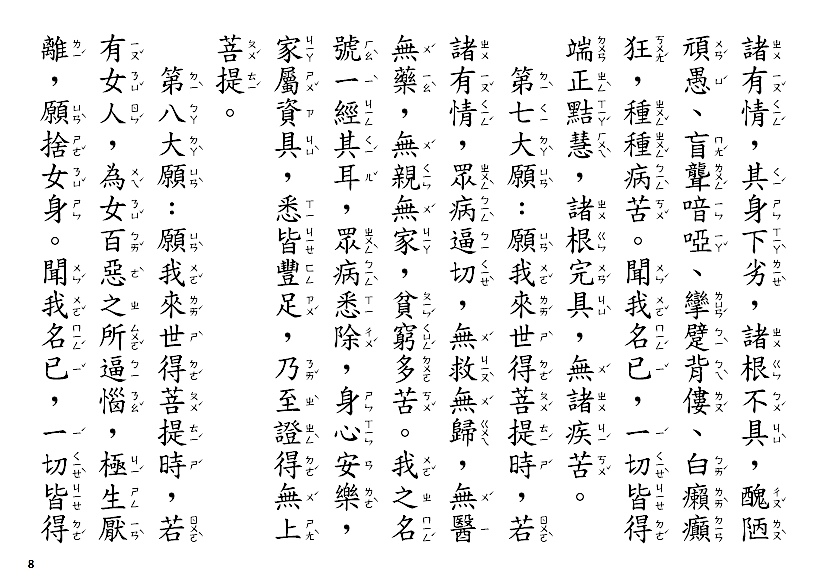 諸有情，其身下劣，諸根不具，醜陋
頑愚、盲聾喑啞、攣躄背僂、白癩癲
狂，種種病苦。聞我名已，一切皆得
端正黠慧，諸根完具，無諸疾苦。
第七大願：願我來世得菩提時，若
諸有情，眾病逼切，無救無歸，無醫
無藥，無親無家，貧窮多苦。我之名
號一經其耳，眾病悉除，身心安樂，
家屬資具，悉皆豐足，乃至證得無上
菩提。
第八大願：願我來世得菩提時，若
有女人，為女百惡之所逼惱，極生厭
離，願捨女身。聞我名已，一切皆得
8